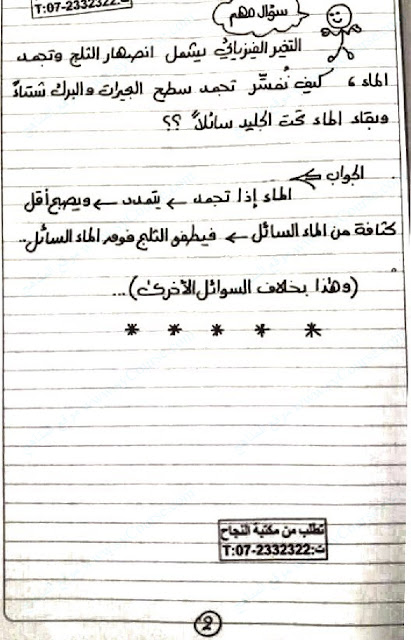 ت:07-2332322
T:07-2332322
سؤال مهم
التغير الفيزيائي يشمل انصهار الثلج وتجمد
الماء ، كيف نُفسِّر تجمد سطح البحيرات والبرك شتاءً
وبقاء الماء تحت الجليد سائلاً ؟؟
الجواب
الماء إذا تجمد ← يتمدد ← ويصبح أقل
كثافة من الماء السائل ← فيطفو الثلج فوق الماء السائل..
(وهذا بخلاف السوائل الأخرى)...
* * * * *
تطلب من مكتبة النجاح
ت:07-2332322:T
2